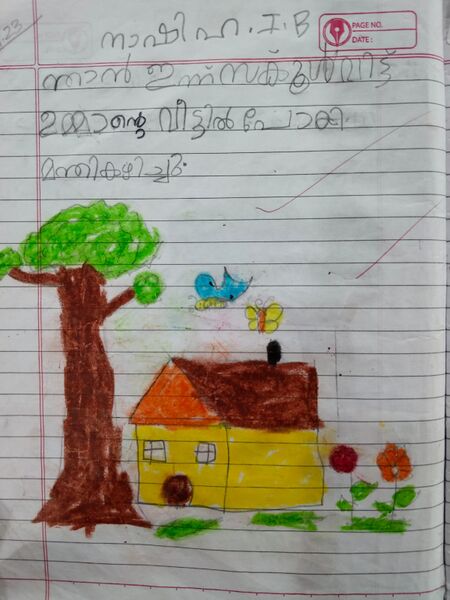 .23
നാഷിഹ . I . B
PAGE NO.
DATE :
ഞാൻ ഇന്ന് സ്കൂൾ വിട്ട്
ഉമ്മാന്റെ വീട്ടിൽ പോയി.
മന്തി കഴിച്ചു.